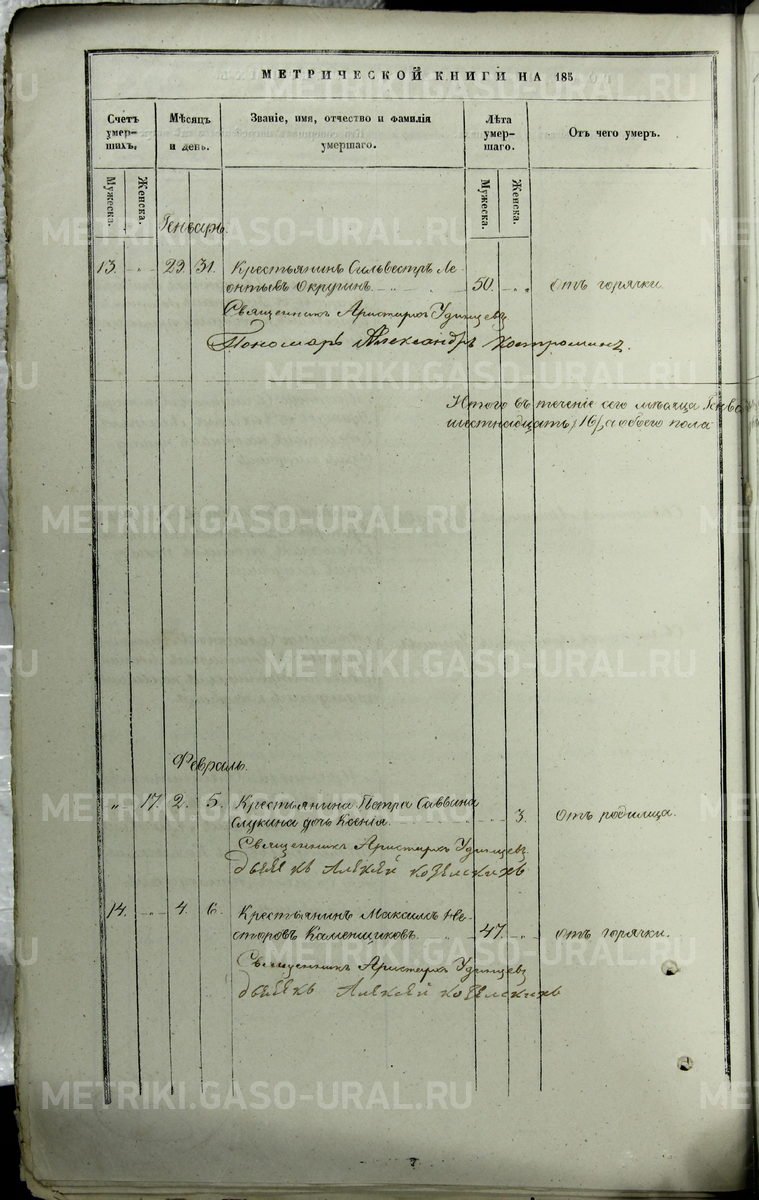 МЕТРИЧЕСКОЙ КНИГИ НА 185
Счетъ умер-шихъ.
Мѣсяцъ и день.
Званіе, имя, отчество и фамилія умершаго.
Лѣта умер-шаго.
Отъ чего умеръ.
Мужеска.
Женска.
Мужеска.
Женска.
Генварь.
13. 29. 31. Крестьянинъ Сильвестръ Ле-
онтьевъ Округинъ. 50. отъ горячки.
Священникъ Аристархъ Удинцевъ
Пономарь Александръ Костроминъ.
Итого въ теченіе сего мѣсяца Генва
шестнадцать /16/, а обоего пола
Февраль.
" 17. 2. 5. Крестьянина Петра Саввина
Слукина дочь Ксенія. 3. отъ родимца.
Священникъ Аристархъ Удинцевъ
Алексѣй
14. 4. 6. Крестьянинъ Максимъ Не-
сторовъ Каменщиковъ. 47. отъ горячки.
Священникъ Аристархъ Удинцевъ
Алексѣй
METRIKI.GASO-URAL.RU